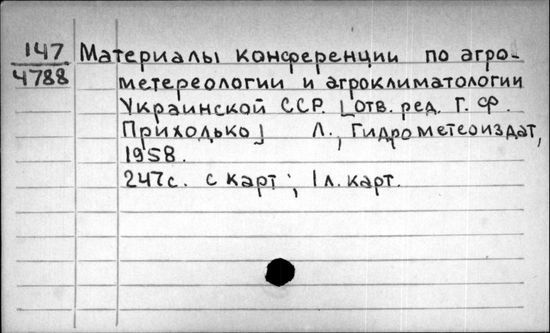 147 Материалы конференции по агро-
4788 метереологии и агроклиматологии
Украинской ССР. [Отв. ред. Г. Ф.
Приходько] Л., Гидрометеоиздат,
1958.
247с. с карт; 1 л. карт.